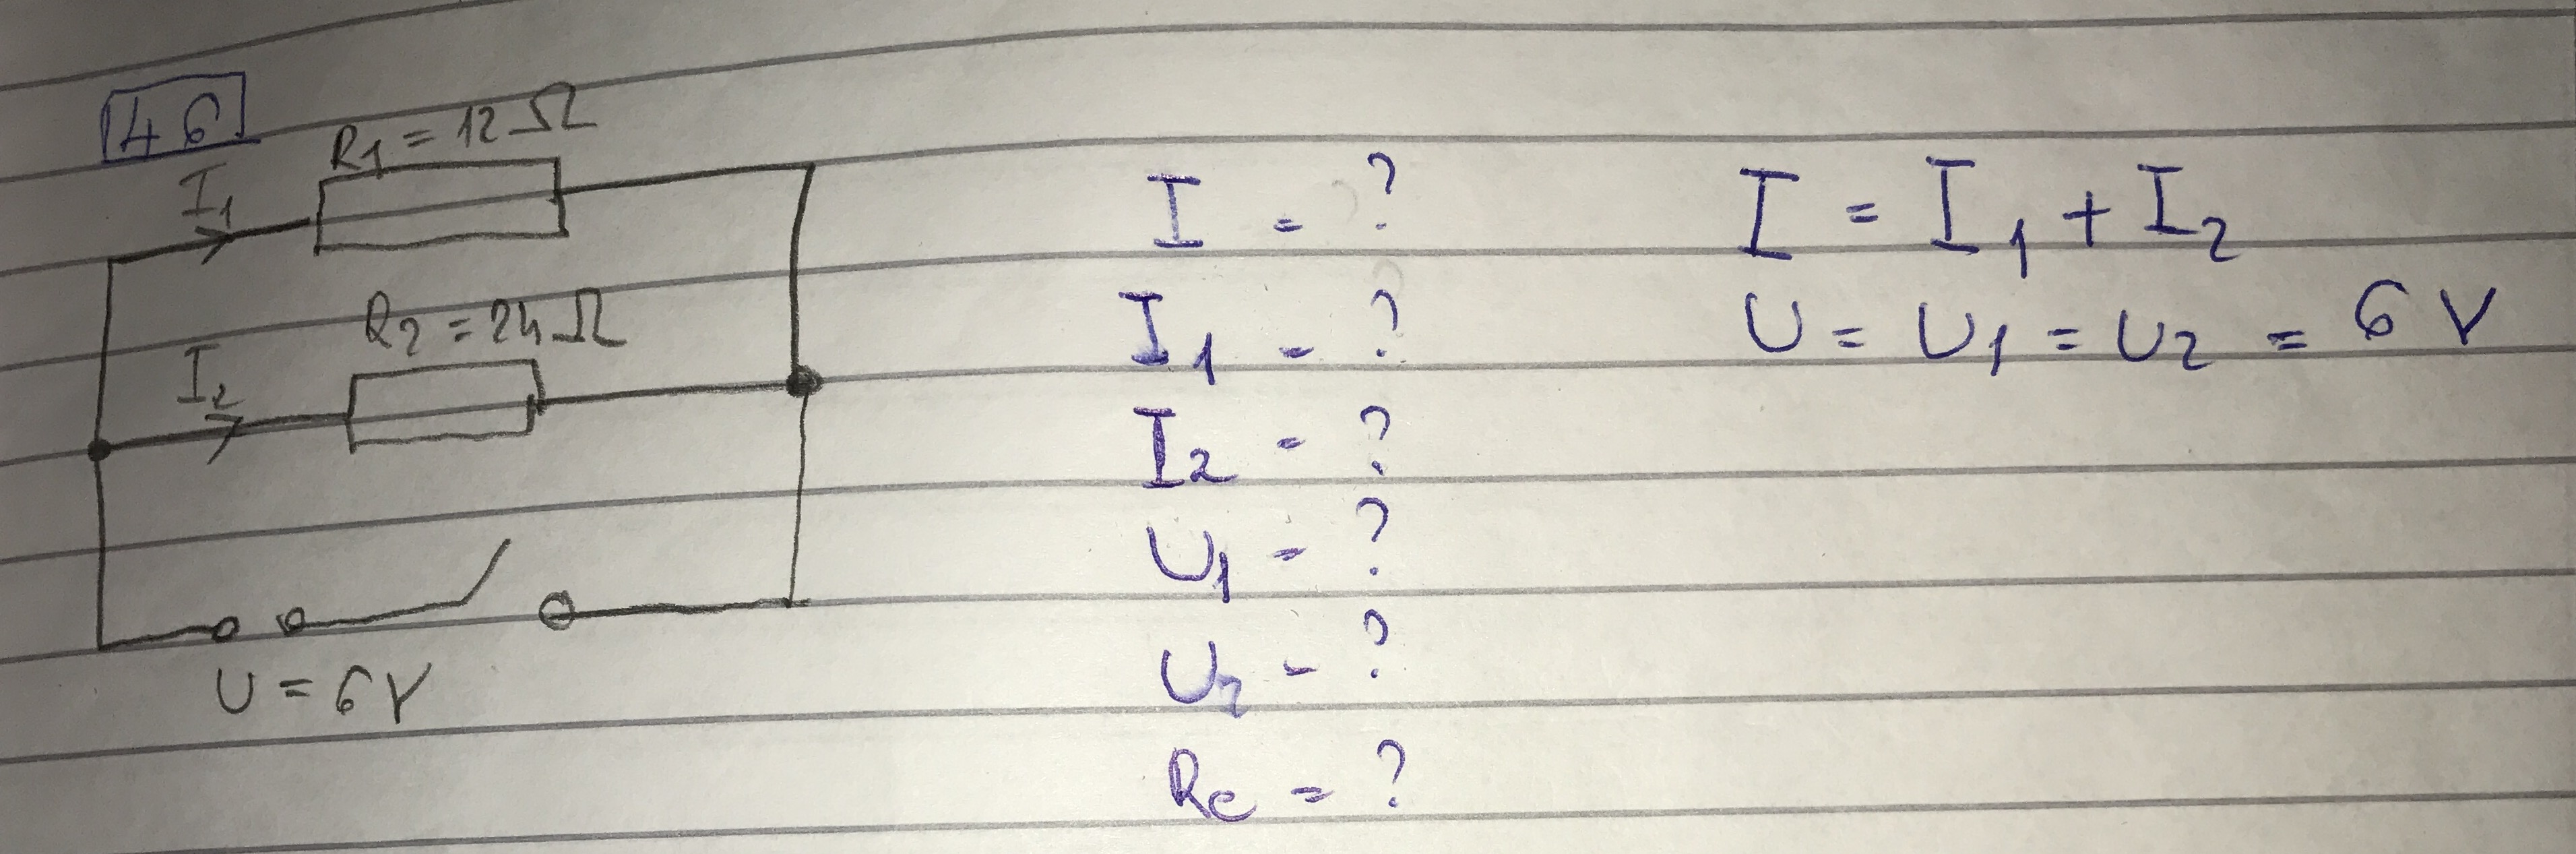 46
R₁ = 12 Ω
I₁
R₂ = 24 Ω
I₂
U = 6V
I = ?
I₁ = ?
I₂ = ?
U₁ = ?
U₂ = ?
Rc = ?
I = I₁ + I₂
U = U₁ = U₂ = 6 V